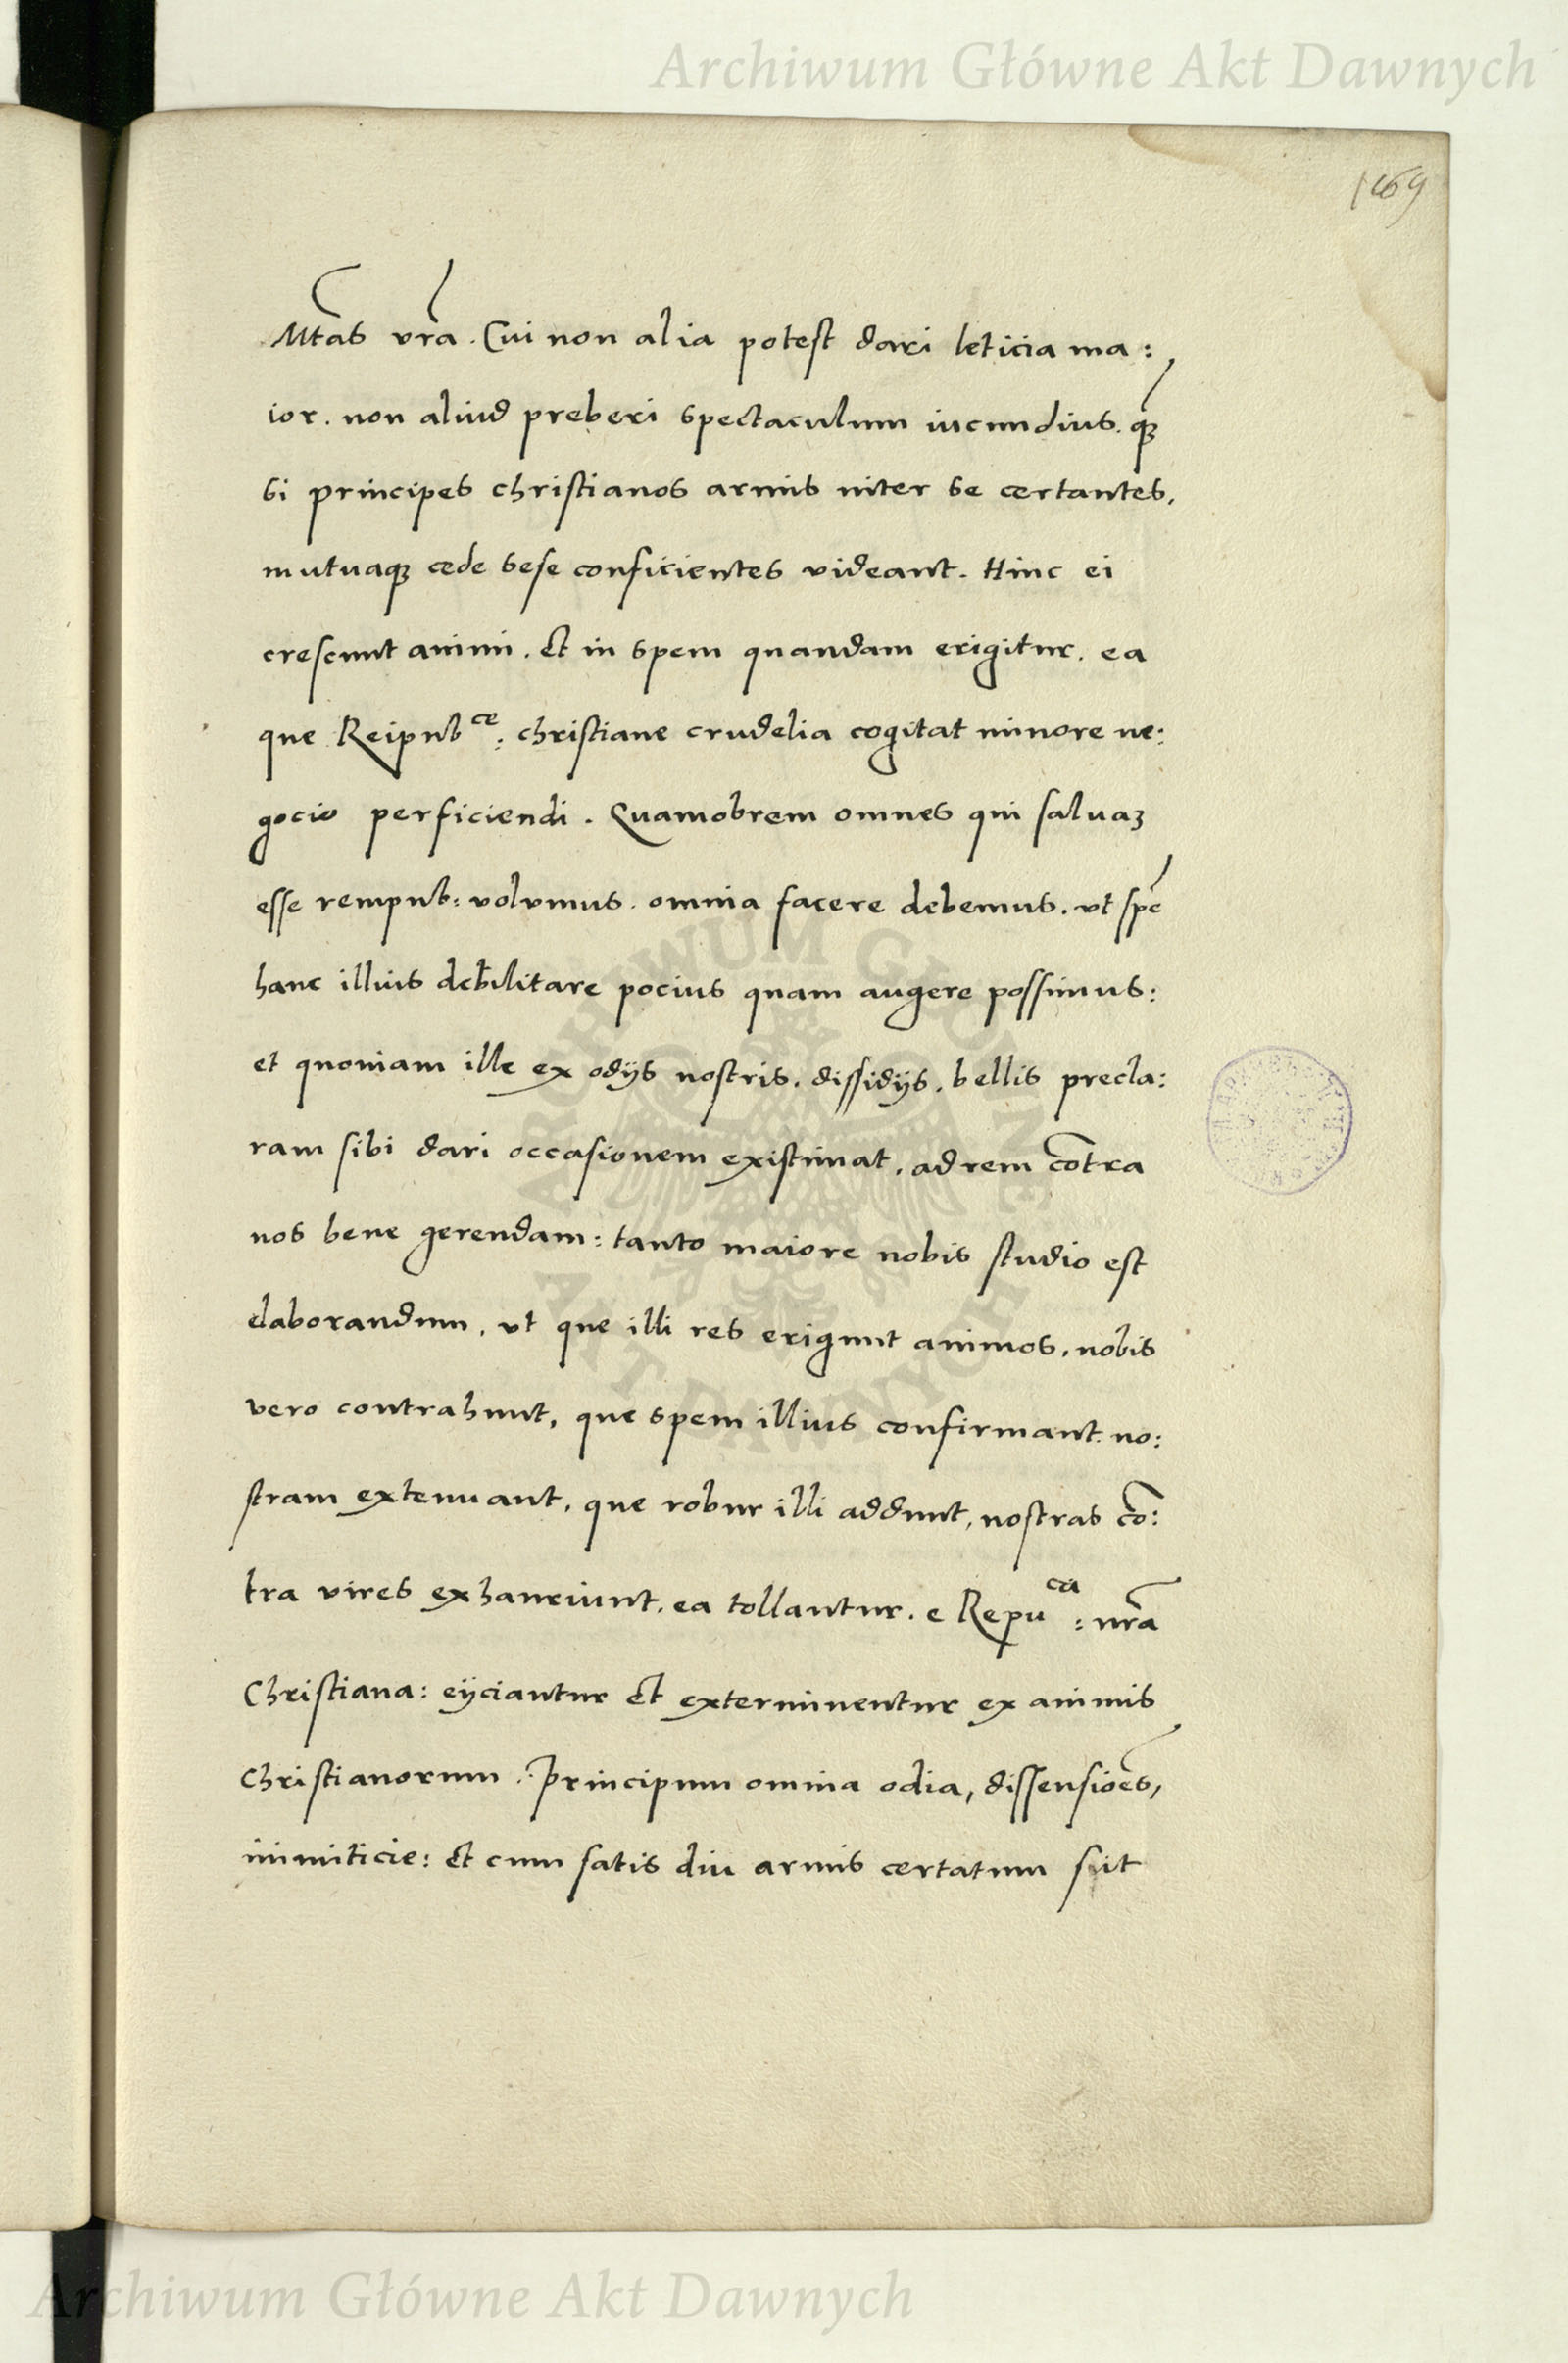 Archiwum Główne Akt Dawnych
169
Mtas vra. Cui non alia potest dari leticia ma:
ior. non aliud preberi spectaculum iucundius. q̃ꝫ
si principes christianos armis inter se certantes,
mutuaqꝫ cede sese conficientes videant. Hinc ei
crescunt animi. Et in spem quandam erigitur. ea
que Reipubce: christiane crudelia cogitat minore ne:
gocio perficiendi. Quamobrem omnes qui saluaꝫ
esse rempub: volumus. omnia facere debemus. vt spē
hanc illius debilitare pocius quam augere possimus:
et quoniam ille ex odijs nostris. dissidijs. bellis precla:
ram sibi dari occasionem existimat. ad rem cōtra
nos bene gerendam: tanto maiore nobis studio est
elaborandum. vt que illi res erigunt animos. nobis
vero contrahunt, que spem illius confirmant. no:
stram extenuant. que robur illi addunt, nostras cō:
tra vires exhauriunt. ea tollantur. e Repuca: nra
Christiana: eijciantur Et exterminentur ex animis
Christianorum. Principum omnia odia, dissensiōes,
inimiticie: Et cum satis diu armis certatum sit
ARCHIWUM GŁÓWNE
AKT DAWNYCH
Archiwum Główne Akt Dawnych